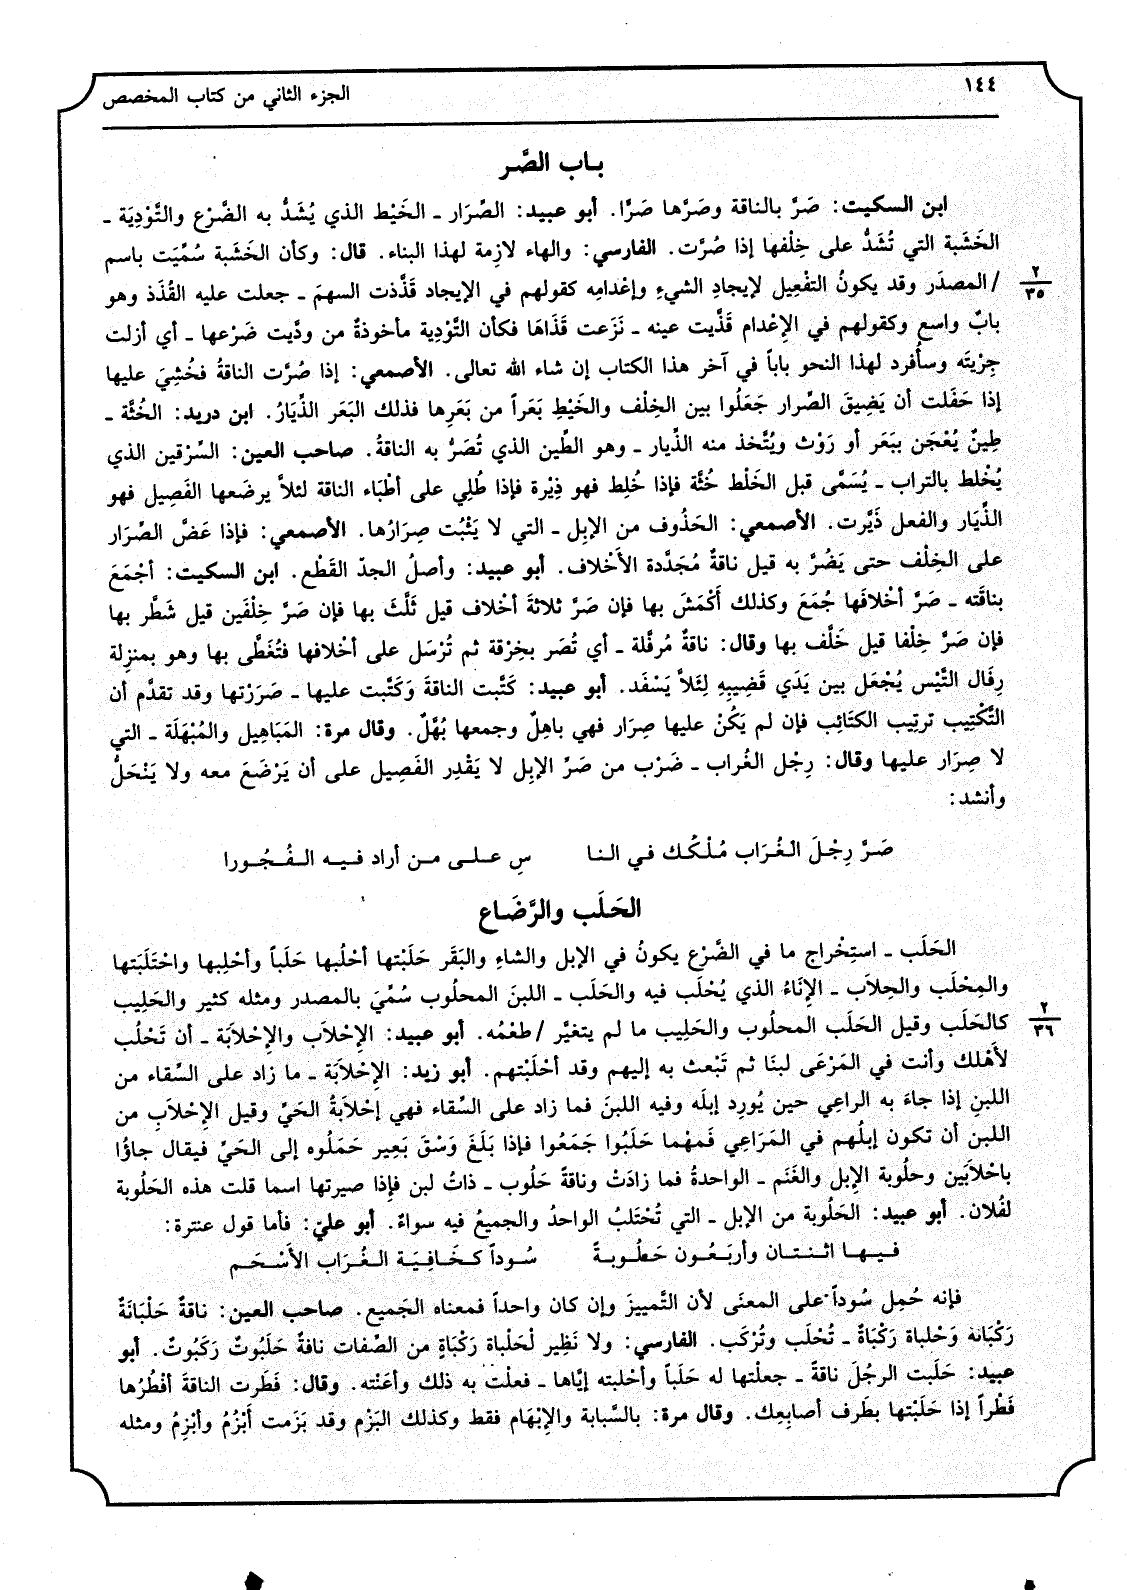 ١٤٤
الجزء الثاني من كتاب المخصص
بـاب الصَّـر
ابن السكيت: صَرَّ بالناقة وصَرَّها صَرًّا. أبو عبيد: الصِّرَار ـ الخَيْط الذي يُشَدُّ به الضَّرْع والتَّوْدِيَة ـ
الخَشَبة التي تُشَدُّ على خِلْفها إذا صُرَّت. الفارسي: والهاء لازِمة لهذا البناء. قال: وكأن الخَشَبة سُمِّيَت باسم
/المصدَر وقد يكونُ التفْعِيل لإيجادِ الشيءِ وإعْدامِه كقولهم في الإيجاد قَذَّذت السهمَ ـ جعلت عليه القُذَذ وهو
٢
٣٥
بابٌ واسع وكقولهم في الإعْدام قَذَّيت عينه ـ نَزَعت قَذَاهَا فكأن التَّوْدِية مأخوذةٌ من ودَّيت ضَرْعها ـ أي أزلت
جِرْيتَه وسأُفرد لهذا النحو باباً في آخر هذا الكتاب إن شاء الله تعالى. الأصمعي: إذا صُرَّت الناقةُ فخُشِيَ عليها
إذا حَفَلت أن يَضِيقَ الصِّرار جَعَلُوا بين الخِلْف والخَيْطِ بَعَراً من بَعَرِها فذلك البَعَر الذِّيَارُ. ابن دريد: الخُثَّة ـ
طِينٌ يُعْجَن ببَعَر أو رَوْث ويُتَّخذ منه الذِّيار ـ وهو الطِّين الذي تُصَرُّ به الناقةُ. صاحب العين: السِّرْقين الذي
يُخْلط بالتراب ـ يُسَمَّى قبل الخَلْط خُثَّة فإذا خُلِط فهو ذِيْرة فإذا طُلِي على أطْبَاء الناقة لئلاَّ يرضَعها الفَصِيل فهو
الذِّيَار والفعل ذَيَّرت. الأصمعي: الحَذُوف من الإبل ـ التي لا يَثْبُت صِرَارُها. الأصمعي: فإذا عَضَّ الصِّرَار
على الخِلْف حتى يَضُرَّ به قيل ناقةٌ مُجَدَّدة الأَخْلاف. أبو عبيد: وأصلُ الجدّ القَطْع. ابن السكيت: أجْمَعَ
بناقَته ـ صَرَّ أخْلافَها جُمَعَ وكذلك أكْمَشَ بها فإن صَرَّ ثلاثةَ أخْلاف قيل ثَلَّثَ بها فإن صَرَّ خِلْفَين قيل شَطَّر بها
فإن صَرَّ خِلْفا قيل خَلَّف بها وقال: ناقةٌ مُرفَّلة ـ أي تُصَر بخِرْقة ثم تُرْسَل على أخْلافها فتُغَطَّى بها وهو بمنزِلة
رِفَال التَّيْس يُجْعَل بين يَدَي قَضِيبِهِ لِئَلاَّ يَسْفَد. أبو عبيد: كَتَّبت الناقةَ وَكَتَّبت عليها ـ صَرَرْتها وقد تقدَّم أن
التَّكْتِيب ترتِيب الكتَائِب فإن لم يَكُنْ عليها صِرَار فهي باهِلٌ وجمعها بُهَّلٌ. وقال مرة: المَبَاهِيل والمُبْهَلَة ـ التي
لا صِرَار عليها وقال: رِجْل الغُراب ـ ضَرْب من صَرِّ الإبِل لا يَقْدِر الفَصِيل على أن يَرْضَعَ معه ولا يَنْحَلُّ
وأنشد:
صَرَّ رِجْلَ الـغُرَاب مُلْـكُـك فـي الـنا      سِ عـلـى مـن أراد فـيـه الـفُـجُـورا
الحَلَب والرَّضَاع
الحَلَب ـ استِخْراج ما في الضَّرْع يكونُ في الإبل والشاءِ والبَقَر حَلَبْتها أحْلُبها حَلَباً وأحْلِبها واحْتَلَبَتها
والمِحْلَب والحِلاَب ـ الإنَاءُ الذي يُحْلَب فيه والحَلَب ـ اللبنَ المحلُوب سُمِّيَ بالمصدر ومثله كثير والحَلِيب
كالحَلَب وقيل الحَلَب المحلُوب والحَلِيب ما لم يتغيَّر /طعْمُه. أبو عبيد: الإِحْلاَب والإِحْلابَة ـ أن تَحْلُب
٢
٣٦
لأَهْلك وأنت في المَرْعَى لبنًا ثم تَبْعث به إليهم وقد أحْلَبْتهم. أبو زيد: الإِحْلابَة ـ ما زاد على السِّقاء من
اللبنِ إذا جاءَ به الراعِي حين يُورِد إبلَه وفيه اللبنَ فما زاد على السِّقاء فهي إحْلابَةُ الحَيِّ وقيل الإِحْلاَبِ من
اللبن أن تكون إبلُهم في المَرَاعِي فَمهْما حَلَبُوا جَمَعُوا فإذا بَلَغَ وَسْقَ بَعِير حَمَلُوه إلى الحَيِّ فيقال جاؤُا
باحْلابَين وحلُوبة الإبل والغَنَم ـ الواحدةُ فما زادَتْ وناقةٌ حَلُوب ـ ذاتُ لبن فإذا صيرتها اسما قلت هذه الحَلُوبة
لفُلان. أبو عبيد: الحَلُوبة من الإبل ـ التي تُحْتَلبُ الواحدُ والجميعُ فيه سواءٌ. أبو عليّ: فأما قول عنترة:
فـيـهـا اثـنـتـان وأربَـعُـون حَـلُـوبـةً      سُـوداً كـخَـافِيَـة الـغُـرَاب الأَسْـحَـم
فإنه حُمِل سُوداً على المعنَى لأن التَّمييزَ وإن كان واحداً فمعناه الجَميع. صاحب العين: ناقةٌ حَلْبَانَةٌ
رَكْبَانة وَحْلباة رَكْبَاةٌ ـ تُحْلَب وتُرْكَب. الفارسي: ولا نَظِير لْحَلْباة رَكْبَاةٍ من الصِّفات ناقةٌ حَلَبُوتٌ رَكَبُوتٌ. أبو
عبيد: حَلَبت الرجُلَ ناقةً ـ جعلْتها له حَلَباً وأحْلبته إيَّاها ـ فعلْت به ذلك وأعَنْته. وقال: فَطَرت الناقةَ أفْطُرُها
فَطْراً إذا حَلَبْتها بطَرف أصابِعِك. وقال مرة: بالسَّبابة والإبْهَام فقط وكذلك البَزْم وقد بَزَمت أَبْزُم وأَبْزِمُ ومثله